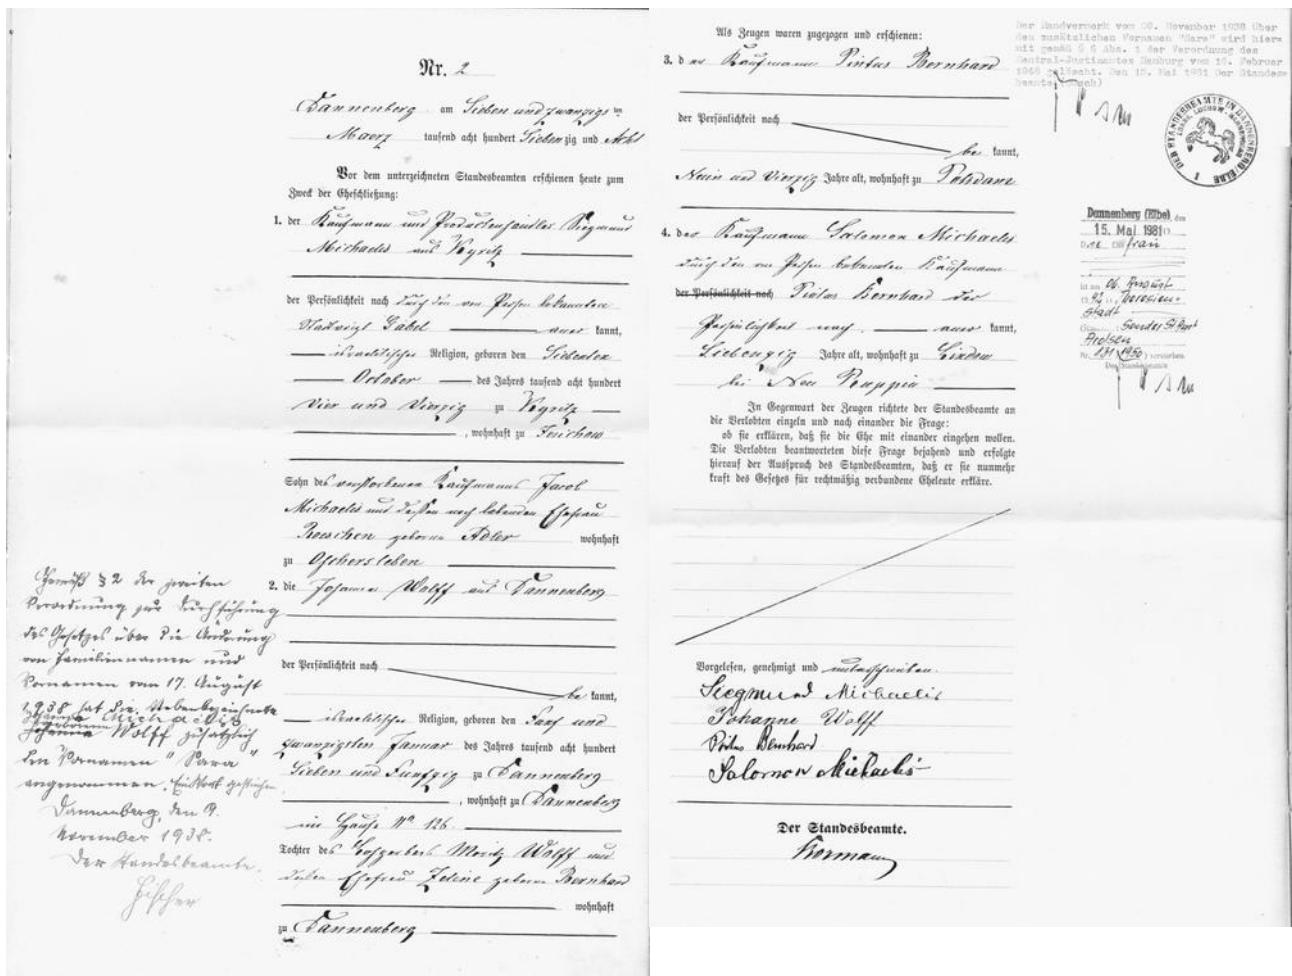 Nr. 2
Dannenberg am Sieben und zwanzigsten
Maerz tausend acht hundert Siebenzig und Acht
Vor dem unterzeichneten Standesbeamten erschienen heute zum
Zweck der Eheschließung:
1. der Kaufmann und Productenhändler Siegmund
Michaelis aus Kyritz
der Persönlichkeit nach durch den von Person bekannten
Stadtvoigt Gäbel anerkannt,
israelitischer Religion, geboren den Siebenten
October des Jahres tausend acht hundert
Vier und Vierzig zu Kyritz
, wohnhaft zu Jerichow
Sohn des verstorbenen Kaufmanns Jacob
Michaelis und dessen noch lebenden Ehefrau
Roeschen geborne Adler wohnhaft
zu Oschersleben
2. die Johanne Wolff aus Dannenberg
der Persönlichkeit nach
be kannt,
israelitischer Religion, geboren den Fünf und
zwanzigsten Januar des Jahres tausend acht hundert
Sieben und Funfzig zu Dannenberg
, wohnhaft zu Dannenberg
im Hause No 126.
Tochter des Lohgerbers Moritz Wolff und
dessen Ehefrau Zeline geborne Bernhard
wohnhaft
zu Dannenberg
Gemäß § 2 der zweiten
Verordnung zur Durchführung
des Gesetzes über die Änderung
von Familiennamen und
Vornamen vom 17. August
1938 hat die Nebenbezeichnete
Johanne Michaelis
geborene Wolff zusätzlich
den Vornamen "Sara"
angenommen. Ein Wort gestrichen
Dannenberg, den 9.
November 1938.
Der Standesbeamte.
Fischer
Als Zeugen waren zugezogen und erschienen:
3. der Kaufmann Pintus Bernhard
der Persönlichkeit nach
be kannt,
Neun und Vierzig Jahre alt, wohnhaft zu Potsdam
4. der Kaufmann Salomon Michaelis
durch den von Person bekannten Kaufmann
der Persönlichkeit nach Pintus Bernhard der
Persönlichkeit nach anerkannt,
Siebenzig Jahre alt, wohnhaft zu Lindow
bei Neu Ruppin
In Gegenwart der Zeugen richtete der Standesbeamte an
die Verlobten einzeln und nach einander die Frage:
ob sie erklären, daß sie die Ehe mit einander eingehen wollen.
Die Verlobten beantworteten diese Frage bejahend und erfolgte
hierauf der Ausspruch des Standesbeamten, daß er sie nunmehr
kraft des Gesetzes für rechtmäßig verbundene Eheleute erkläre.
Vorgelesen, genehmigt und unterschrieben
Siegmund Michaelis
Johanne Wolff
Pintus Bernhard
Salomon Michaelis
Der Standesbeamte.
Kormann
Der Randvermerk vom 09. November 1938 über
den zusätzlichen Vornamen "Sara" wird hier-
mit gemäß § 6 Abs. 1 der Verordnung des
Zentral-Justizamtes Hamburg vom 16. Februar
gelöscht. Den 15. Mai 1981 Der Standes-
beamte
DER STANDESBEAMTE IN DANNENBERG (ELBE)
1
Dannenberg (Elbe), den
15. Mai 1981
Die Ehefrau
ist am 06. August
1942 in Theresien-
stadt
Sonder StAmt
Arolsen
Nr. 131/1950 ) verstorben
Der Standesbeamte